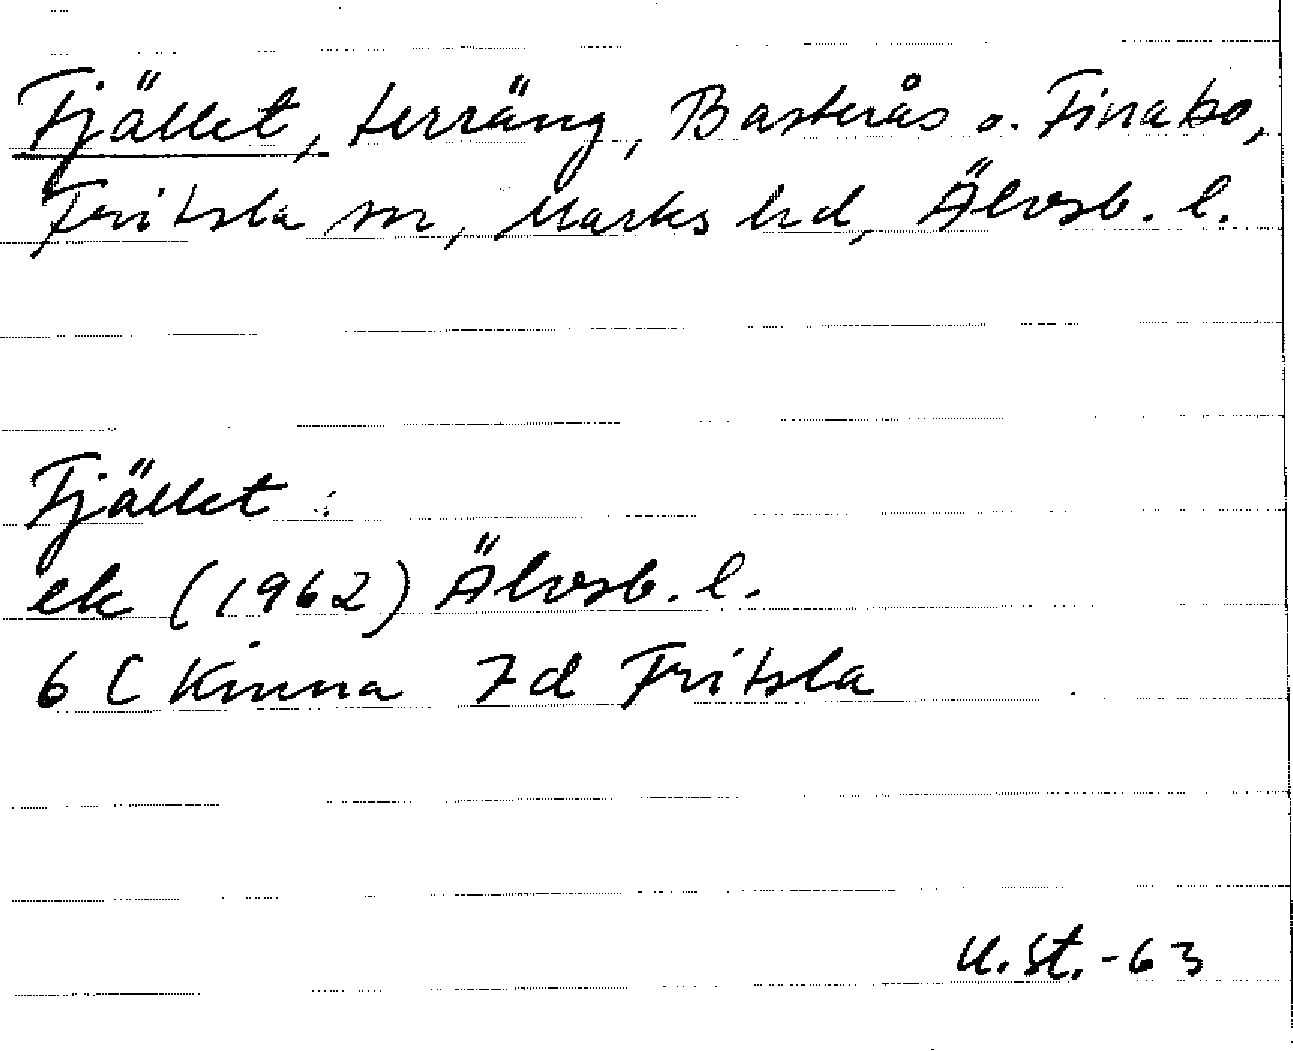 Fjället, terräng, Basterås o. Finabo,
Fritsla sn, Marks hd, Älvsb. l.
Fjället
ek (1962) Älvsb. l.
6 C Kinna 7d Fritsla
U. St. -63